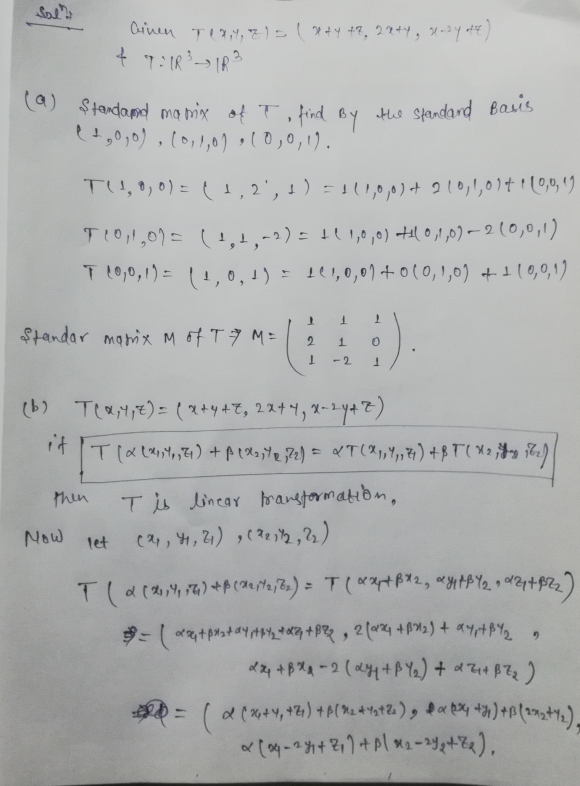 Solⁿ:
Given T(x,y,z) = (x+y+z, 2x+y, x-2y+z)
& T: ℝ³→ℝ³
(a) Standard matrix of T, find By the standard Basis
(1,0,0), (0,1,0), (0,0,1).
T(1,0,0) = (1, 2, 1) = 1(1,0,0) + 2(0,1,0) + 1(0,0,1)
T(0,1,0) = (1,1,-2) = 1(1,0,0) +1(0,1,0) - 2(0,0,1)
T(0,0,1) = (1,0,1) = 1(1,0,0) + 0(0,1,0) + 1(0,0,1)
1 1 1
Standar matrix M of T ⇒ M = ( 2 1 0 ).
1 -2 1
(b) T(x,y,z) = (x+y+z, 2x+y, x-2y+z)
if T(α(x₁,y₁,z₁) + β(x₂,y₂,z₂) = αT(x₁,y₁,z₁) + βT(x₂,y₂,z₂)
then T is linear transformation.
Now let (x₁, y₁, z₁), (x₂,y₂,z₂)
T(α(x₁,y₁,z₁)+β(x₂,y₂,z₂) = T(αx₁+βx₂, αy₁+βy₂, αz₁+βz₂)
= (αx₁+βx₂+αy₁+βy₂+αz₁+βz₂, 2(αx₁+βx₂) + αy₁+βy₂,
αx₁+βx₂-2(αy₁+βy₂) + αz₁+βz₂)
= (α(x₁+y₁+z₁)+β(x₂+y₂+z₂), α(2x₁+y₁)+β(2x₂+y₂),
α(x₁-2y₁+z₁)+β(x₂-2y₂+z₂).